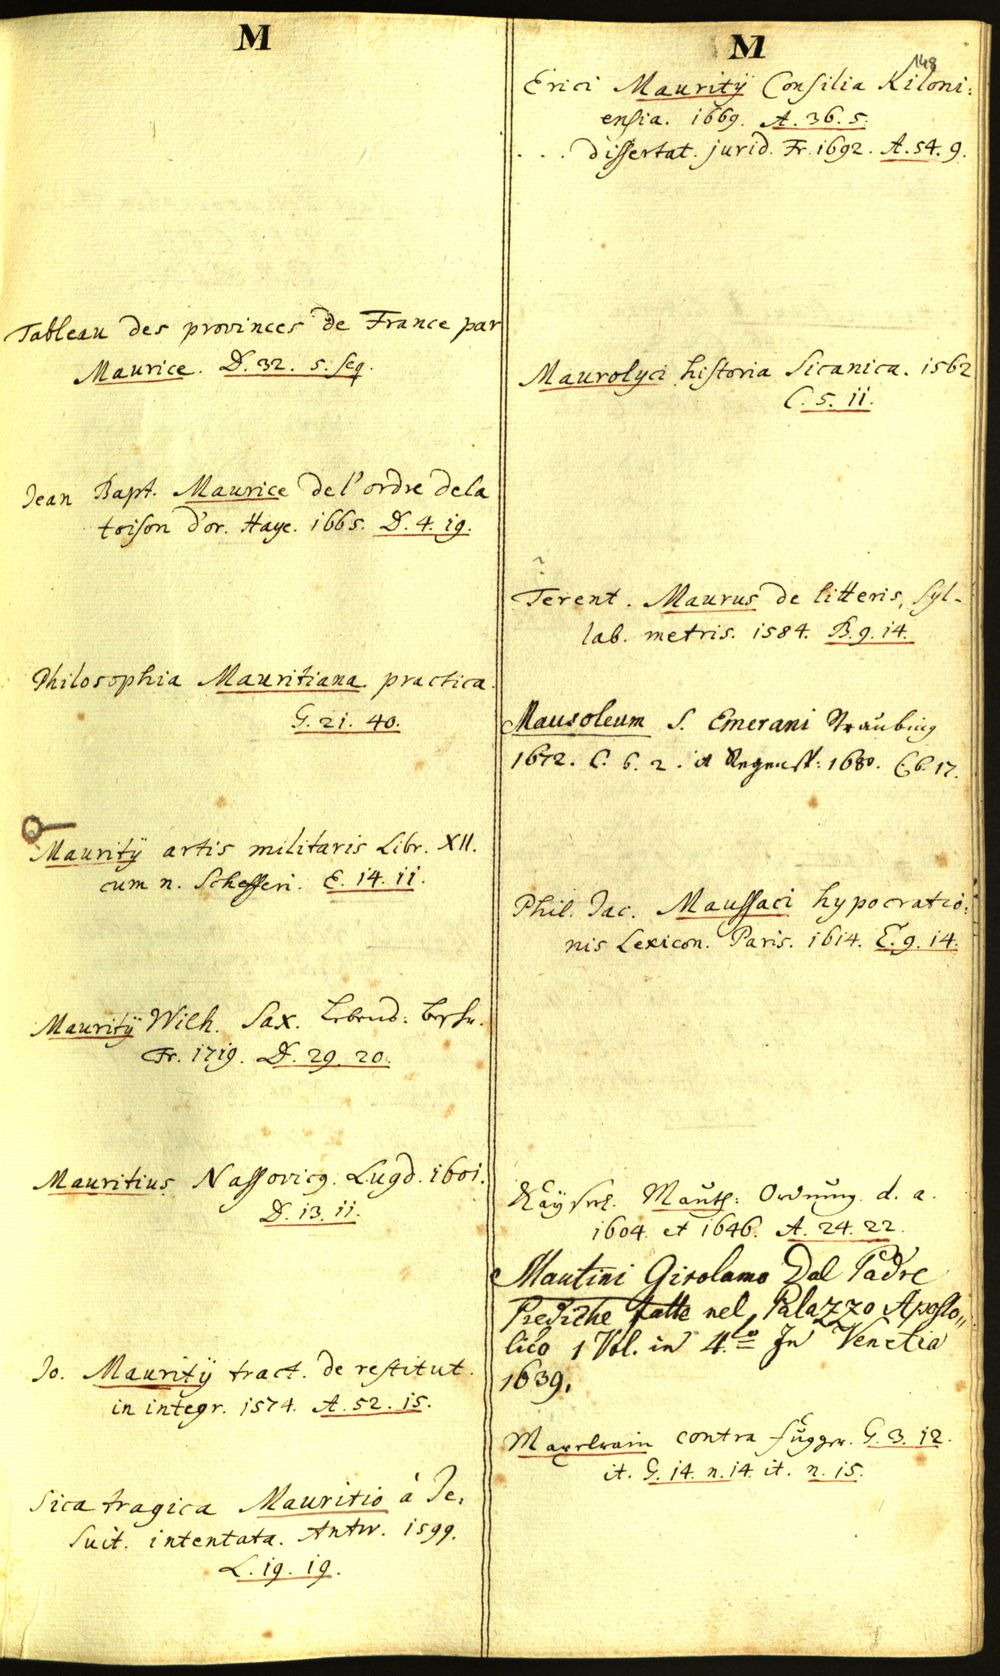 M
Tableau des provinces de France par
Maurice. D. 32. 5. seq.
Jean Bapt. Maurice de l'ordre dela
toison d'or. Haye. 1665. D. 4. 19.
Philosophia Mauritiana practica.
G. 21. 40.
Mauritÿ artis militaris Libr. XII.
cum n. Schefferi. E. 14. 11.
Mauritÿ Wilh. Sax. Lebens: beschr.
Fr. 1719. D. 29. 20.
Mauritius Nassovicg. Lugd. 1601.
D. 13. 11.
Jo. Mauritÿ tract. de restitut.
in integr. 1574. A. 52. 15.
Sica tragica Mauritio à Je:
suit. intentata. Antw. 1599.
L. 19. 19.
M
148
Erici Mauritÿ Consilia Kiloni:
ensia. 1669. A. 36. 5.
. . . dissertat. jurid. Fr. 1692. A. 54. 9.
Maurolyci historia Sicanica. 1562
C. 5. 11.
Terent. Maurus de litteris, syl-
lab. metris. 1584. B. 9. 14.
Mausoleum S. Emerani Straubing
1672. C. 6. 2. it Regenst: 1680. C. 6. 17.
Phil. Jac. Maussaci hypocratio:
nis Lexicon. Paris. 1614. E. 9. 14.
Kaÿserl. Mauth: Ordnung d. a.
1604 et 1646. A. 24. 22.
Mautini Girolamo Dal Padre
Prediche fatte nel Palazzo Aposto„
lico 1 Vol. in 4.to In Venetia
1639.
Maxelrain contra fugger. G. 3. 12.
it. G. 14. n. 14. it. n. 15.